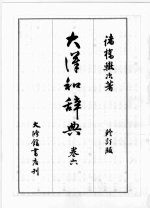 諸橋轍次著
大漢和辞典 卷六
修訂版
大修館書店刊